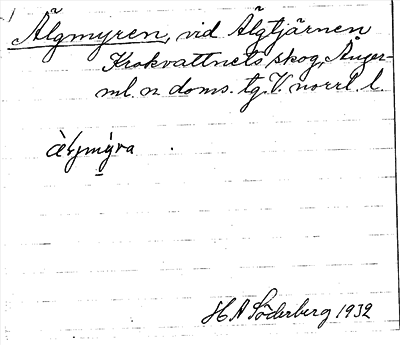 Älgmyren, vid Älgtjärnen
Krokvattnets skog, Ånger-
ml. n doms. tg. V. norrl. l.
H A Söderberg 1932